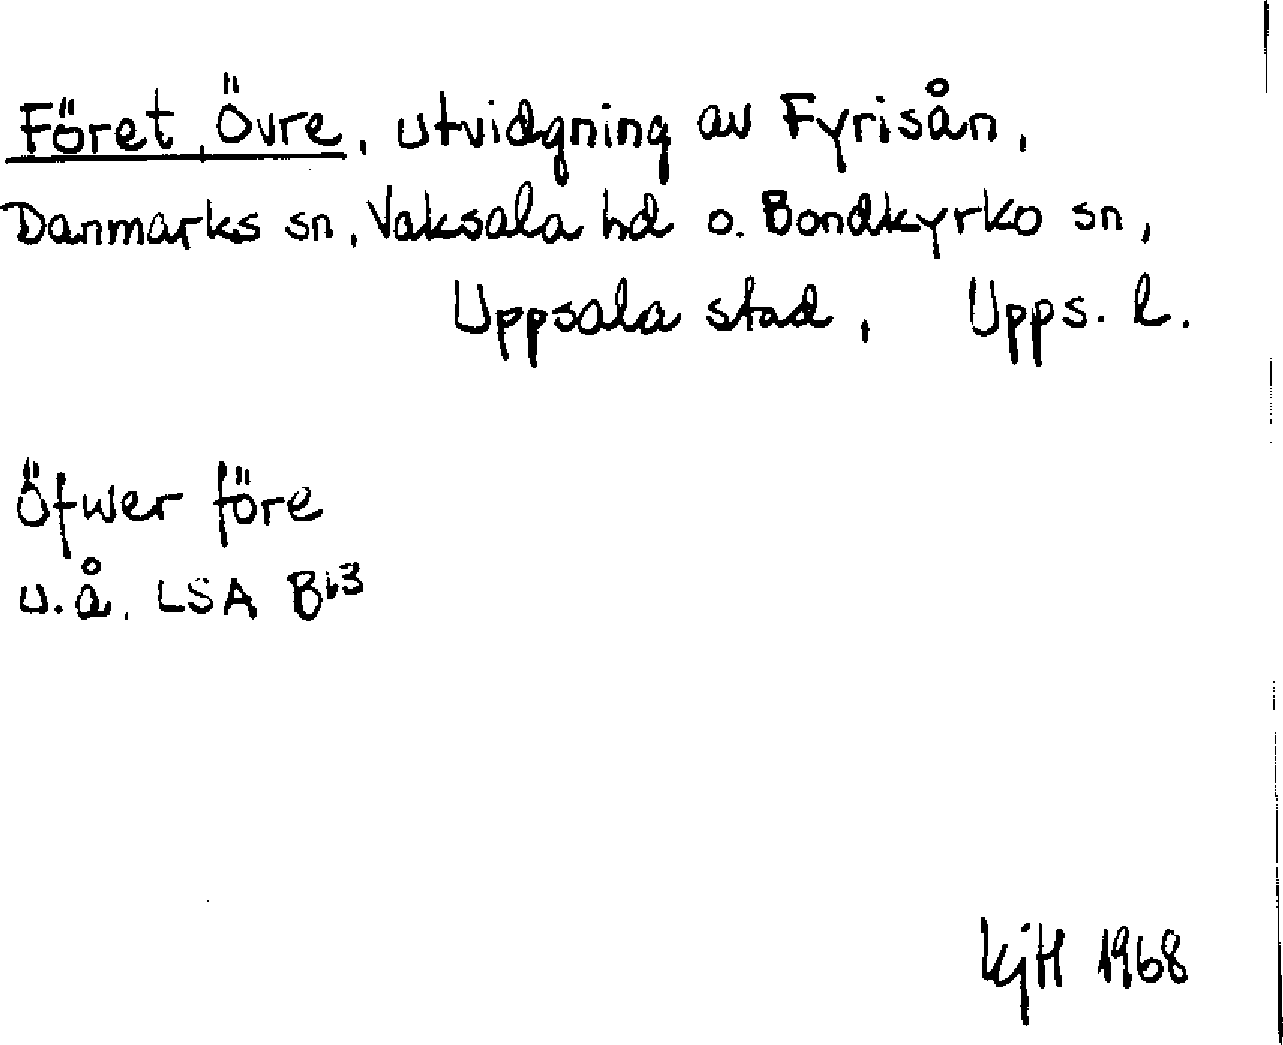 Föret, Övre, utvidgning av Fyrisån,
Danmarks sn, Vaksala hd o. Bondkyrko sn,
Uppsala stad, Upps. l.
Öfwer före
u.å. LSA B⁶³
KjH 1968